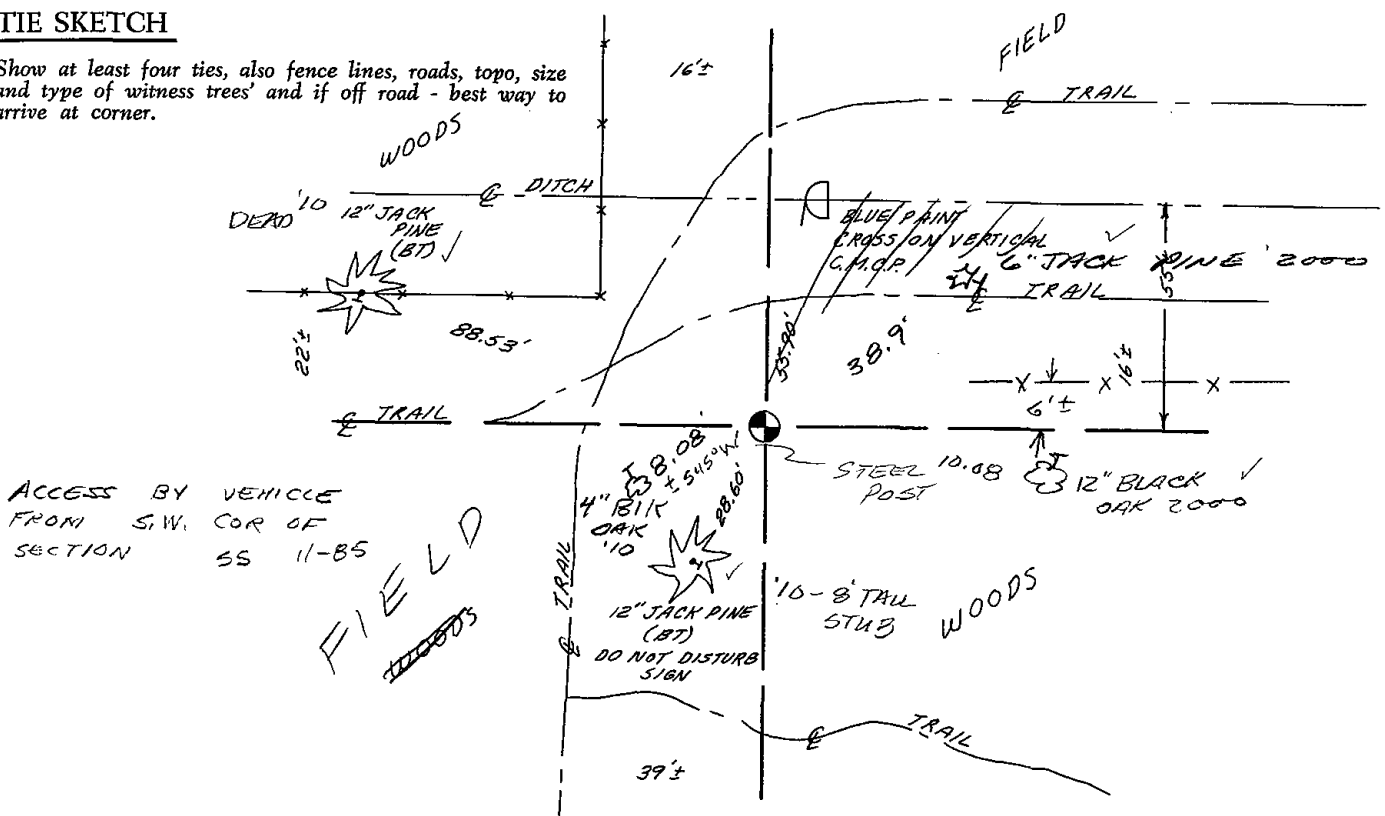 TIE SKETCH
Show at least four ties, also fence lines, roads, topo, size
and type of witness trees' and if off road - best way to
arrive at corner.
16'±
FIELD
℄ TRAIL
WOODS
℄ DITCH
DEAD '10
12" JACK
PINE
(BT) ✓
BLUE PAINT
CROSS ON VERTICAL
C.M.C.P.
✓
6" JACK PINE '2000
℄ TRAIL
55'±
22'±
88.53'
55.90'
38.9'
16'±
X X X
6'±
℄ TRAIL
8.08'
± S45°W
28.60'
STEEL
POST
10.08
12" BLACK ✓
OAK 2000
4" BlK
OAK
'10
ACCESS BY VEHICLE
FROM S.W. COR OF
SECTION SS 11-85
FIELD
WOODS
℄ TRAIL
✓
12" JACK PINE
(BT)
DO NOT DISTURB
SIGN
'10-8' TALL
STUB
WOODS
℄ TRAIL
39'±